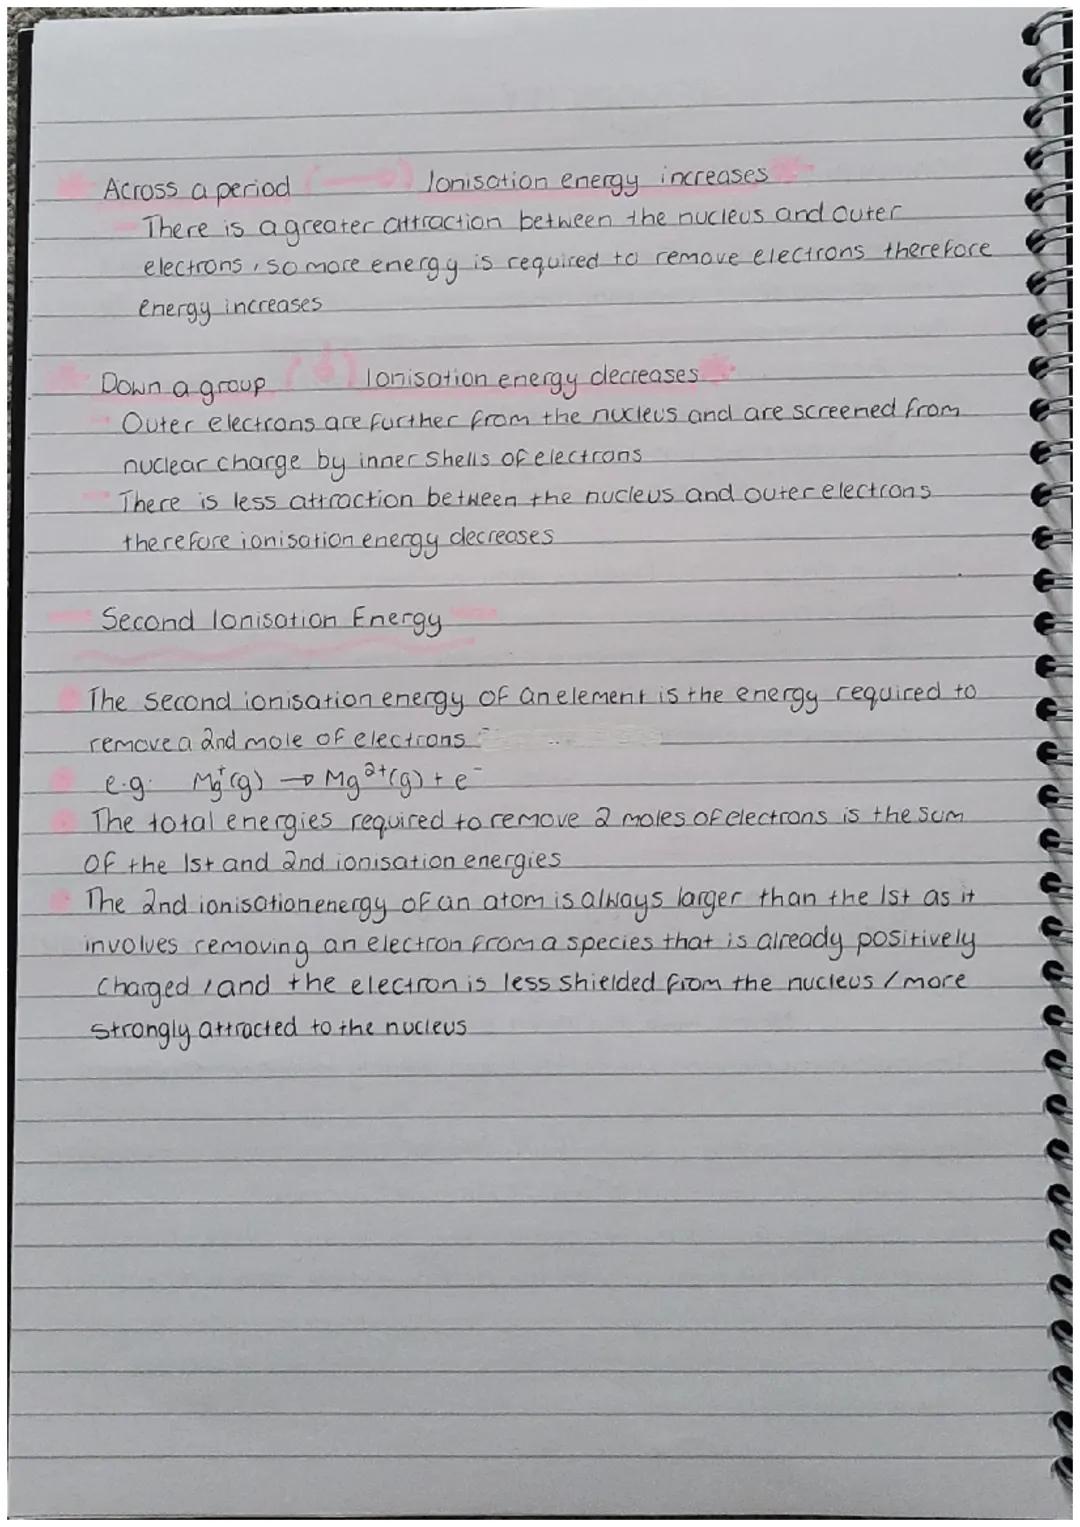 Across a period (→) Ionisation energy increases
There is a greater attraction between the nucleus and outer
electrons, so more energy is required to remove electrons therefore
energy increases
Down a group (↓) Ionisation energy decreases
Outer electrons are further from the nucleus and are screened from
nuclear charge by inner shells of electrons
There is less attraction between the nucleus and outer electrons
therefore ionisation energy decreases
Second Ionisation Energy
The second ionisation energy of an element is the energy required to
remove a 2nd mole of electrons
e.g. Mg⁺(g) → Mg²⁺(g) + e⁻
The total energies required to remove 2 moles of electrons is the sum
of the 1st and 2nd ionisation energies
The 2nd ionisation energy of an atom is always larger than the 1st as it
involves removing an electron from a species that is already positively
charged, and the electron is less shielded from the nucleus / more
strongly attracted to the nucleus